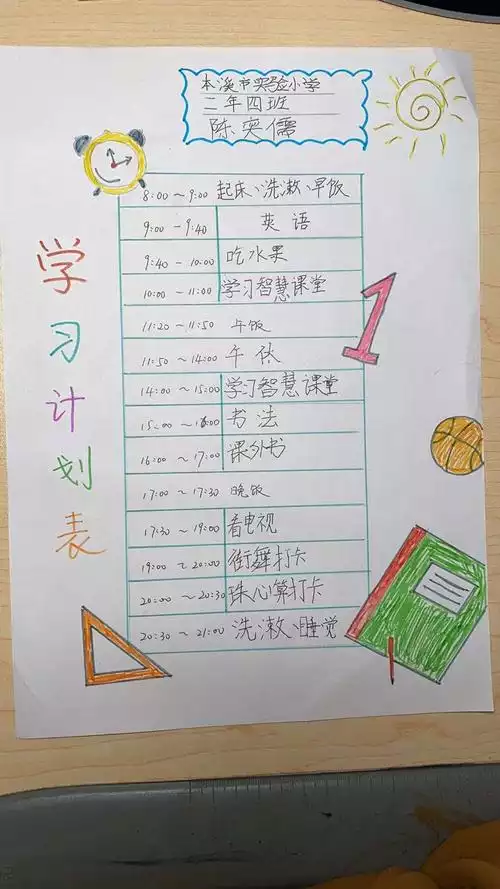 本溪市实验小学
二年四班
陈奕儒
学习计划表
8:00～9:00 起床、洗漱、早饭
9:00－9:40 英语
9:40－10:00 吃水果
10:00－11:00 学习智慧课堂
11:20～11:50 午饭
11:50～14:00 午休
14:00～15:00 学习智慧课堂
15:00～16:00 书法
16:00～17:00 课外书
17:00～17:30 晚饭
17:30～19:00 看电视
19:00～20:00 街舞打卡
20:00～20:30 珠心算打卡
20:30～21:00 洗漱、睡觉
1